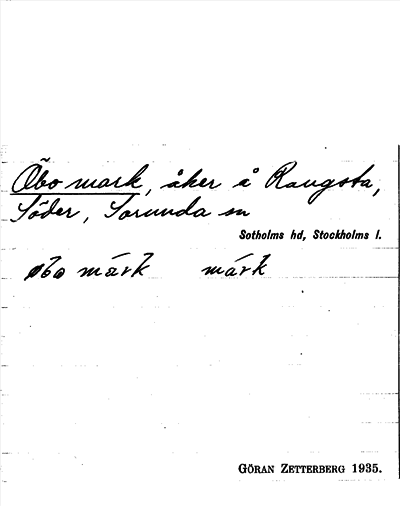 Öbo mark, åker å Rangsta,
Söder, Sorunda sn
Sotholms hd, Stockholms l.
øbo márk márk
GÖRAN ZETTERBERG 1935.